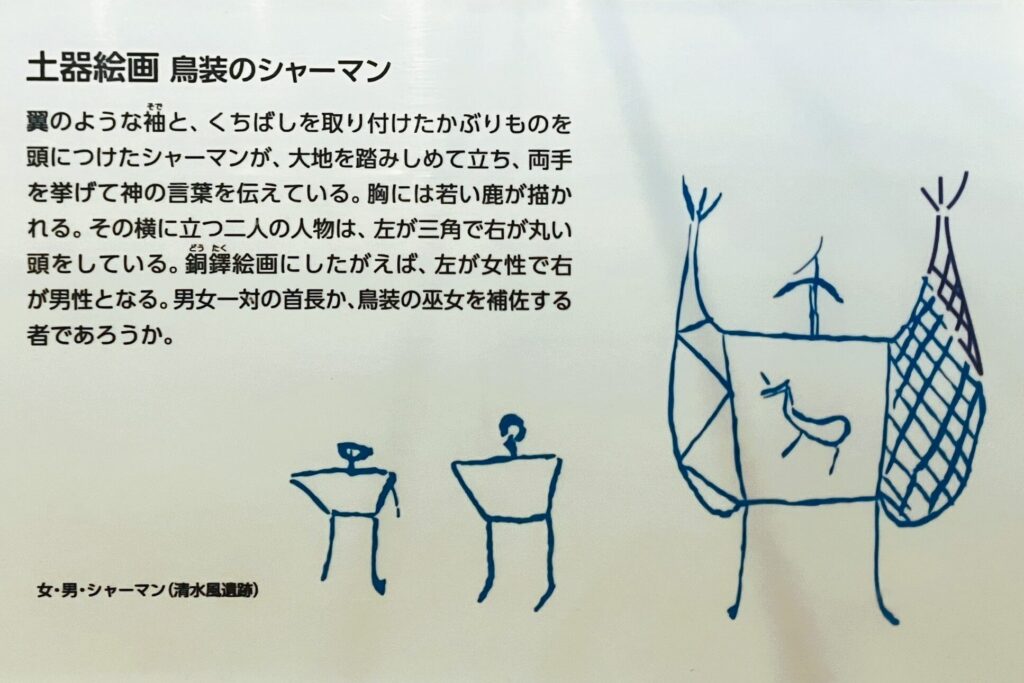 土器絵画 鳥装のシャーマン
翼のような袖と、くちばしを取り付けたかぶりものを
頭につけたシャーマンが、大地を踏みしめて立ち、両手
を挙げて神の言葉を伝えている。胸には若い鹿が描か
れる。その横に立つ二人の人物は、左が三角で右が丸い
頭をしている。銅鐸絵画にしたがえば、左が女性で右
が男性となる。男女一対の首長か、鳥装の巫女を補佐する
者であろうか。
女・男・シャーマン（清水風遺跡）